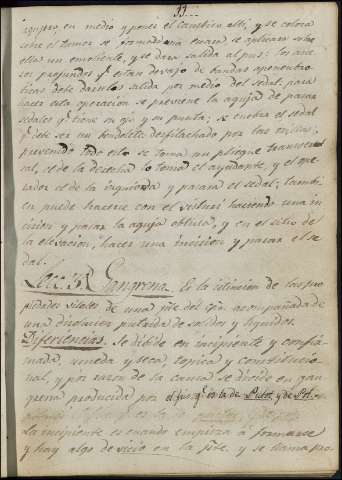 33
agujero en medio y poner el cambiro alli, y se coloca
sobre el tumor se formadena escara se aplicara sobre
ellas un emoliente, y se dara salida al pus: los abce
sos profundos q.e estan devajo de bandas aponeuro
ticas debe darseles salida por medio del sedal. para
hacer esta operacion se previene la aguja de pasar
sedales q.e tiene su ojo y su punta; se enebra el sedal
q.e debe ser un bendelete desfilachado por las orillas;
prevenido todo esto se toma un pliegue transver
sal, el de la derecha lo toma el ayudante, y el ope
rador el de la izquierda y pasara el sedal; tambi
en puede hacerse con el visturi haciendo una in
cision y pasar la aguja obtusa, y en el sitio de
la elevacion, hacer una incision y pasar el se
dal.
Lecc. 3.a Gangrena. Es la estincion de las pro
piedades vitales, de una p.te del cpo. acompañada de
una disolucion putrida de solidos y liquidos.
Diferiencias. Se dibide en incipiente y confir
mada, umeda y seca, topica y constitucio
nal, y por razon de la causa se divide en gan
grena producida por
La incipiente es cuando empieza a formarse
y hay algo de vicio en la p.te, y se llama pro